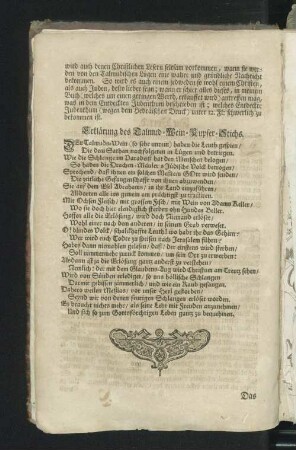 wird auch denen Christlichen Lesern seltsam vorkommen, wann sie werden
von den Talmudischen Lügen eine wahre und gründliche Nachricht
bekommen. So wird es auch einem jedweden so wohl einem Christen,
als auch Juden, desto lieber seyn; wann er schier alles dieses, in meinem
Buch (welches um einen geringen Werth, erkauffet wird) antreffen mag,
was in dem Entdeckten Judenthum beschrieben ist; welches Entdeckte
Judenthum (wegen dem Hebräischen Druck, unter 12. fl. schwerlich zu
bekommen ist.
Erklärung des Talmud-Wein-Kupfer-Stichs.
Den Talmuds-Wein, so sehr unrein, haben die Leuth gesoffen,
Die dem Sathan nachgefolget in Lügen und betrogen.
Wie die Schlange im Paradeyß hat den Menschen belogen,
So haben die Drachen-Mäuler das Jüdische Volck betrogen,
Sprechend, daß ihnen ein solchen Messias GOtt wird senden,
Die zeitliche Gefangenschafft von ihnen abzuwenden,
Sie auf dem Esel Abrahams, in ihr Land einzuführen,
Allborten alle ins gemein am prächtigst zu tractiren,
Mit Ochsen Fleisch, mit grossem Fisch, mit Wein von Adams Keller,
Wo sie doch hier elendiglich sterben ohn Hund und Heller.
Hoffen alle die Erlösung, wird doch Niemand erlöset,
Wohl einer nach dem anderen, in seinem Grab verweset.
O! blindes Volck, schalckhaffte Leuth! wo habt ihr das Gehirn,
Wer wird euch Todte zu zusehen nach Jerusalem führen?
Habet dann niemahlen gelesen, daß, der einstens wird sterben,
Soll nimmermehr zuruck kommen, um sein Ort zu erwerben;
Nemlich: der mit dem Glaubens-Aug wird Christum am Creutz sehen,
Wird von Sünden erlediget, so von höllische Schlangen
Daheto weilen Messias, vor unser Heyl gestorben,
Seynd wir von denen feurigen Schlangen erlöset worden.
Es braucht nichts mehr, als seine Lehr mit Freuden anzunehmen,
Und sich so zum Gottsförchtigen Leben gantz zu bequemen.
Das